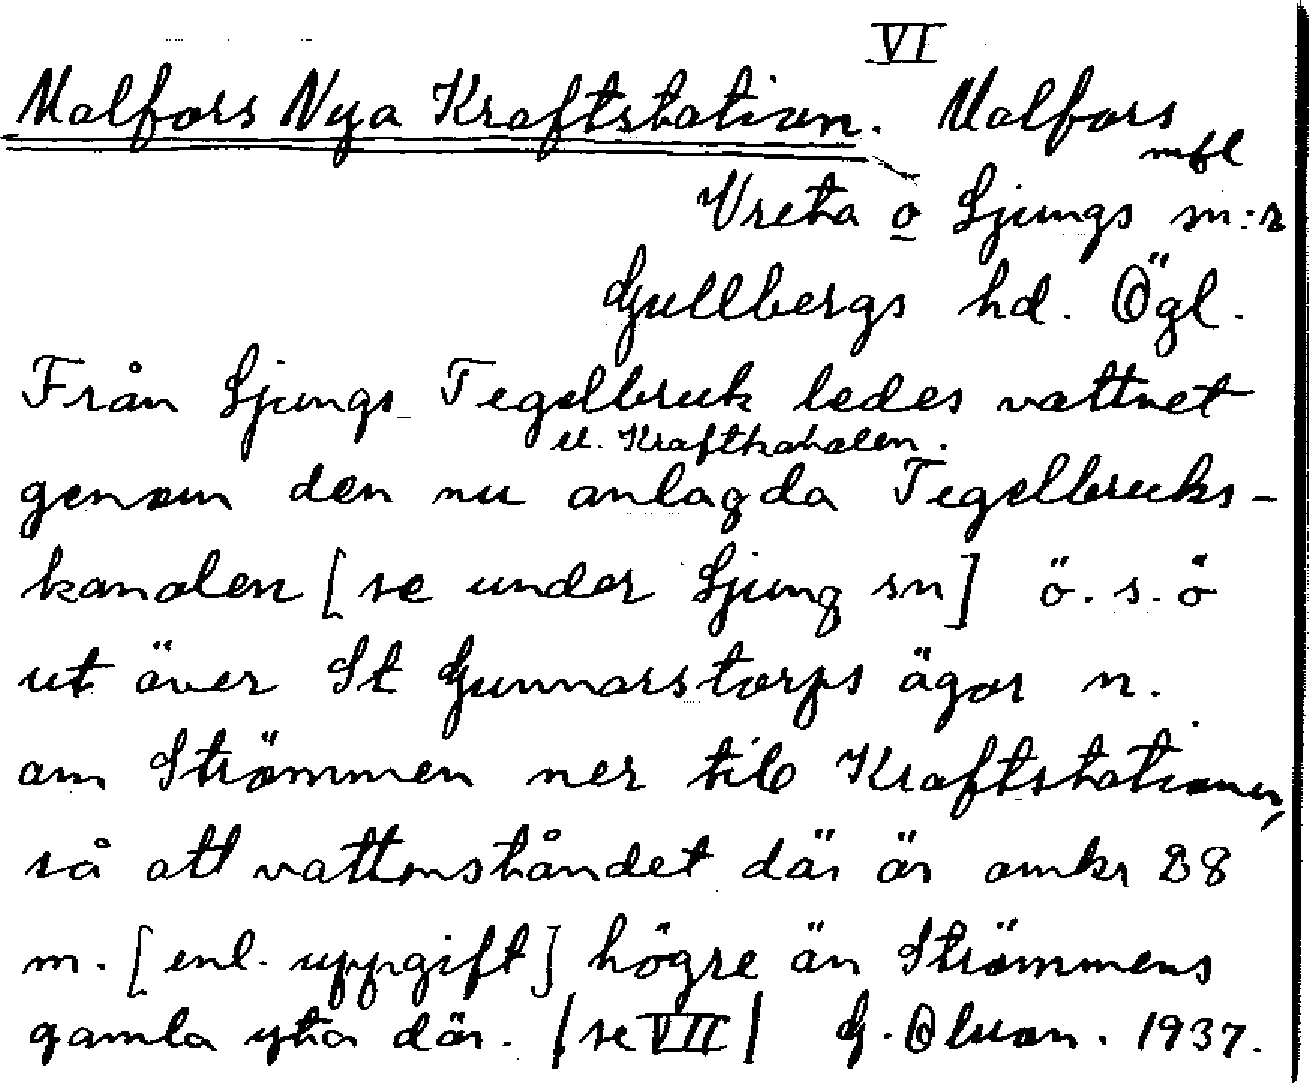 VI
Malfors Nya Kraftstation. Malfors
mfl
Vreta o Ljungs sn:r
Gullbergs hd. Ögl.
Från Ljungs Tegelbruk ledes vattnet
el. Kraftkanalen.
genom den nu anlagda Tegelbruks-
kanalen [se under Ljung sn] ö.s.ö
ut över St Gunnarstorps ägor n.
om Strömmen ner till Kraftstationen,
så att vattenståndet där är omkr 28
m. [enl. uppgift] högre än Strömmens
gamla yta där. /se VII/ G. Olson. 1937.